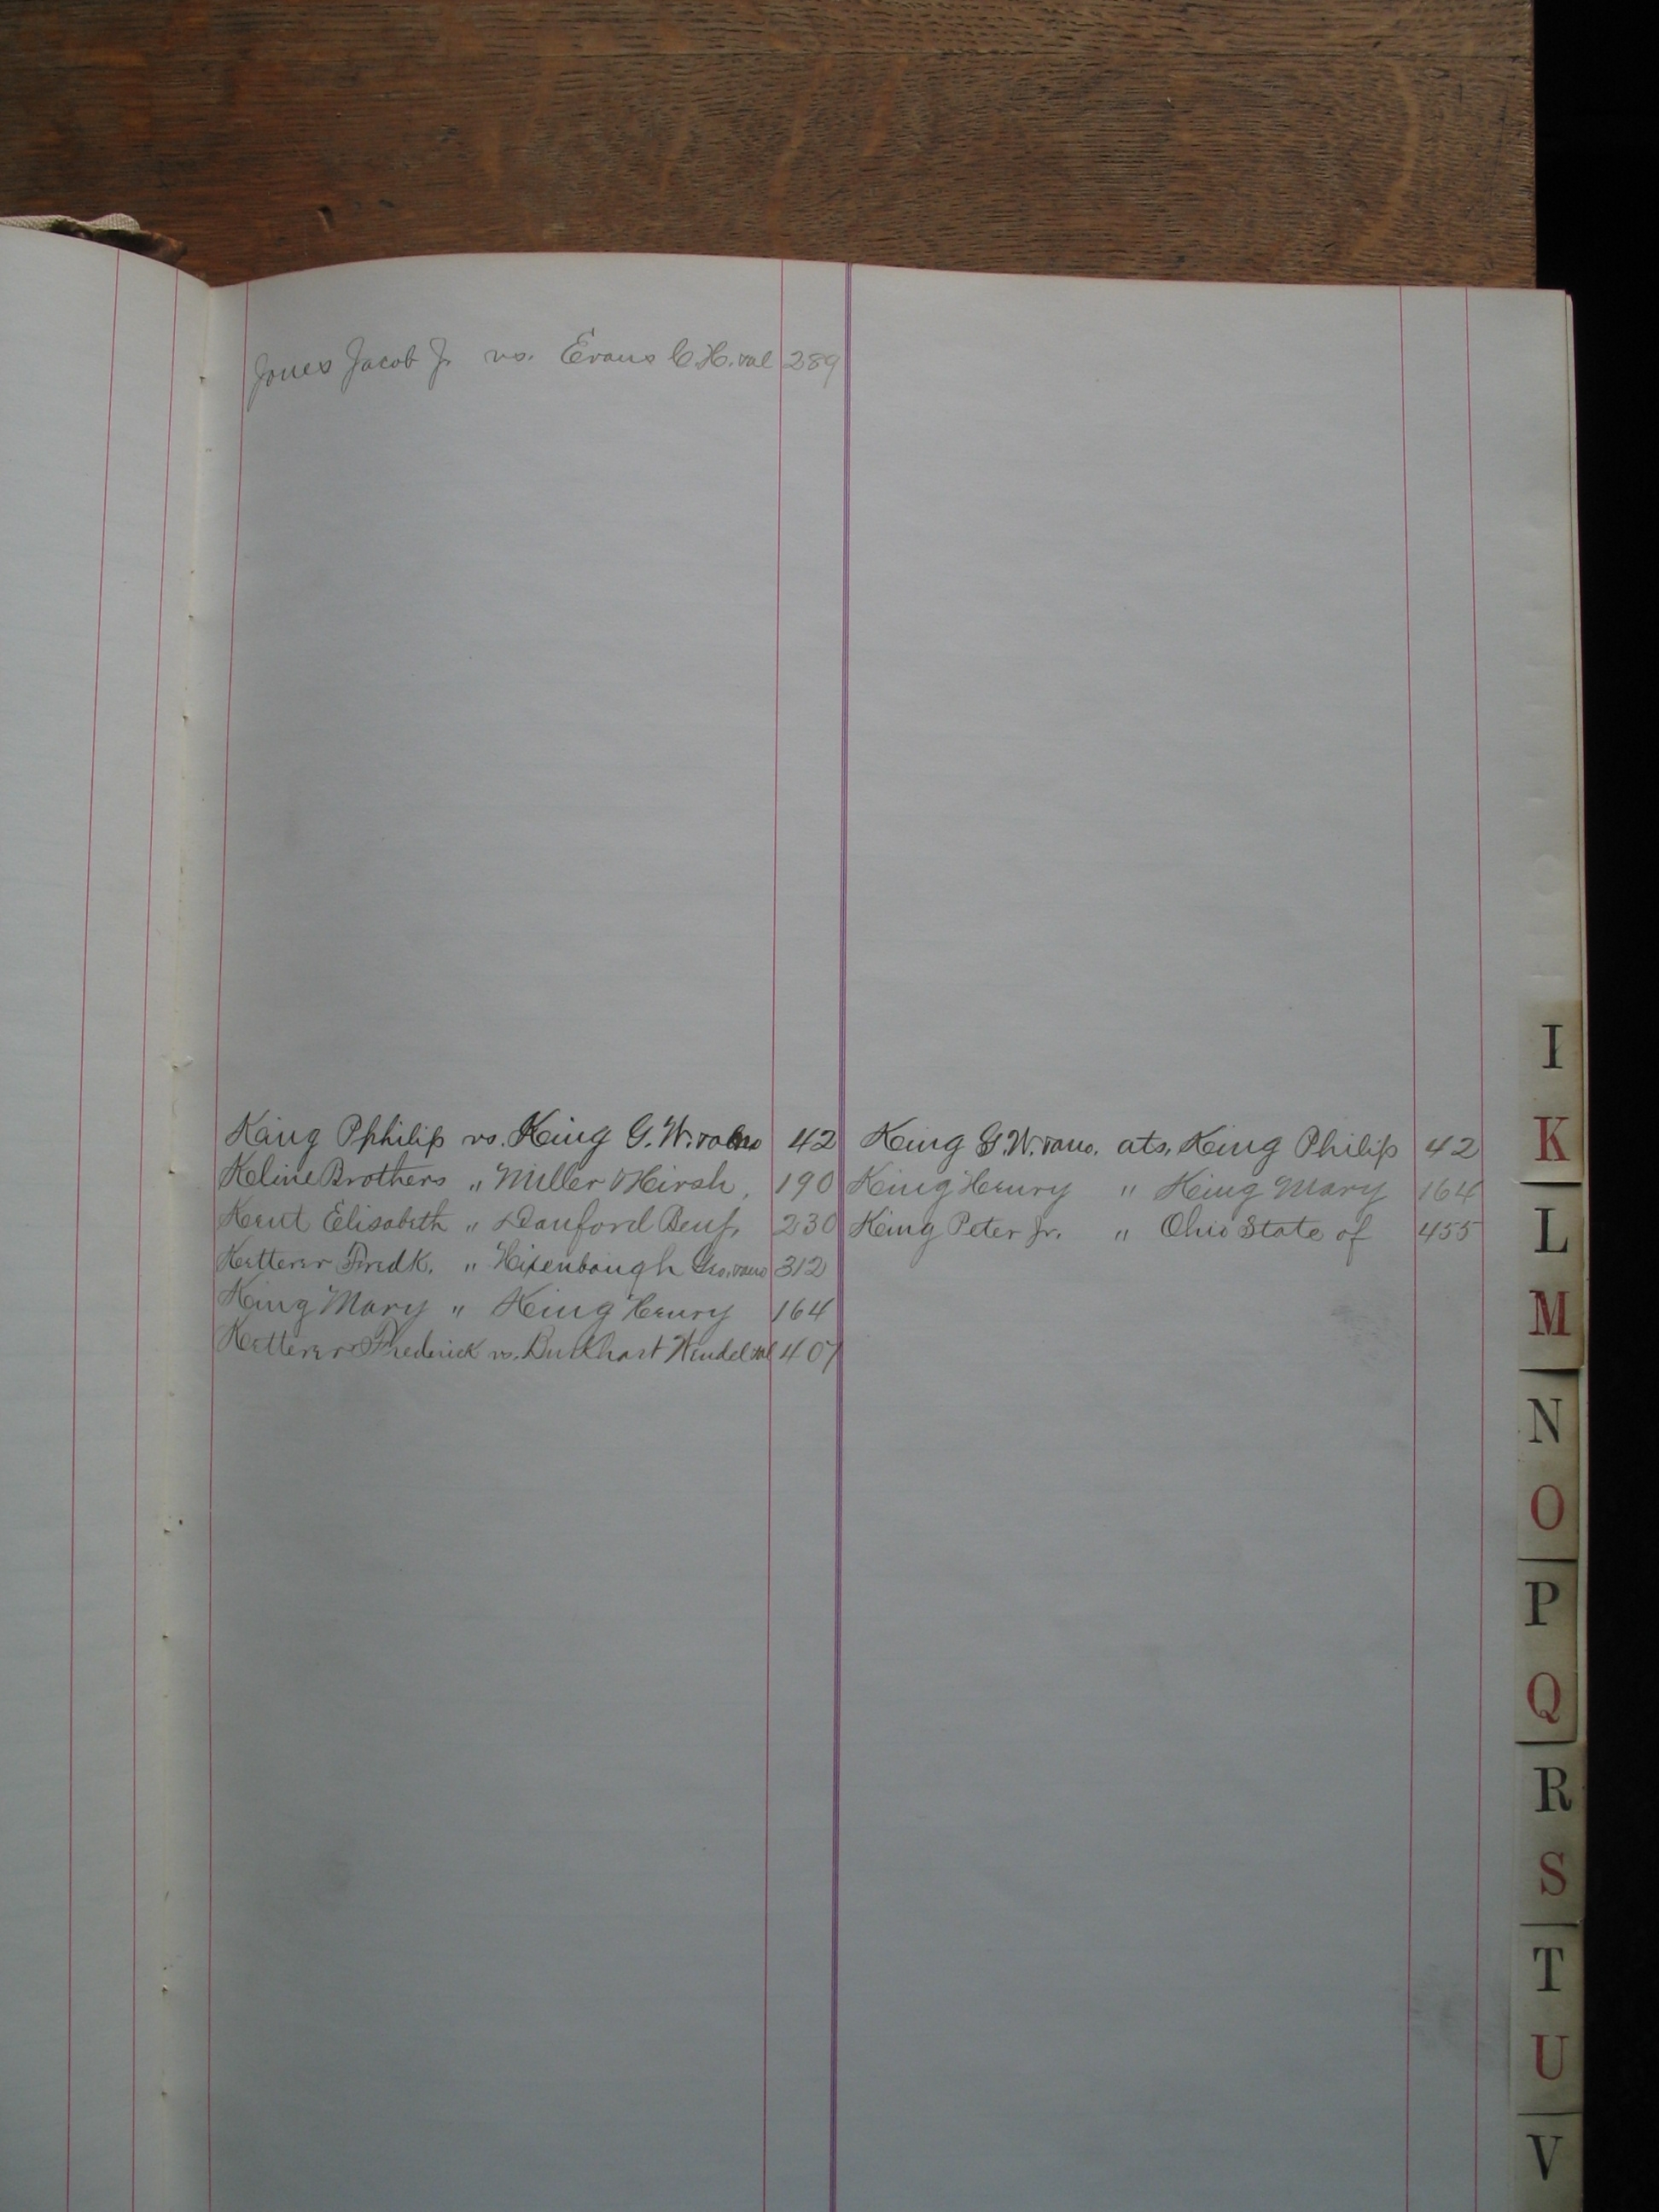 Jones Jacob J. vs. Evans C H. et al 289
King Philip vs. King G. W. 42
Kline Brothers " Miller & Hirsh, 190
Kent Elisabeth " Danford Benj. 230
Ketterer Fredk. " Hixenbaugh Geo. 312
King Mary " King Henry 164
Ketterer Frederick vs. Burkhart Wendel et al 407
King G. W. ats. King Philip 42
King Henry " King Mary 164
King Peter Jr. " Ohio State of 455
I
K
L
M
N
O
P
Q
R
S
T
U
V